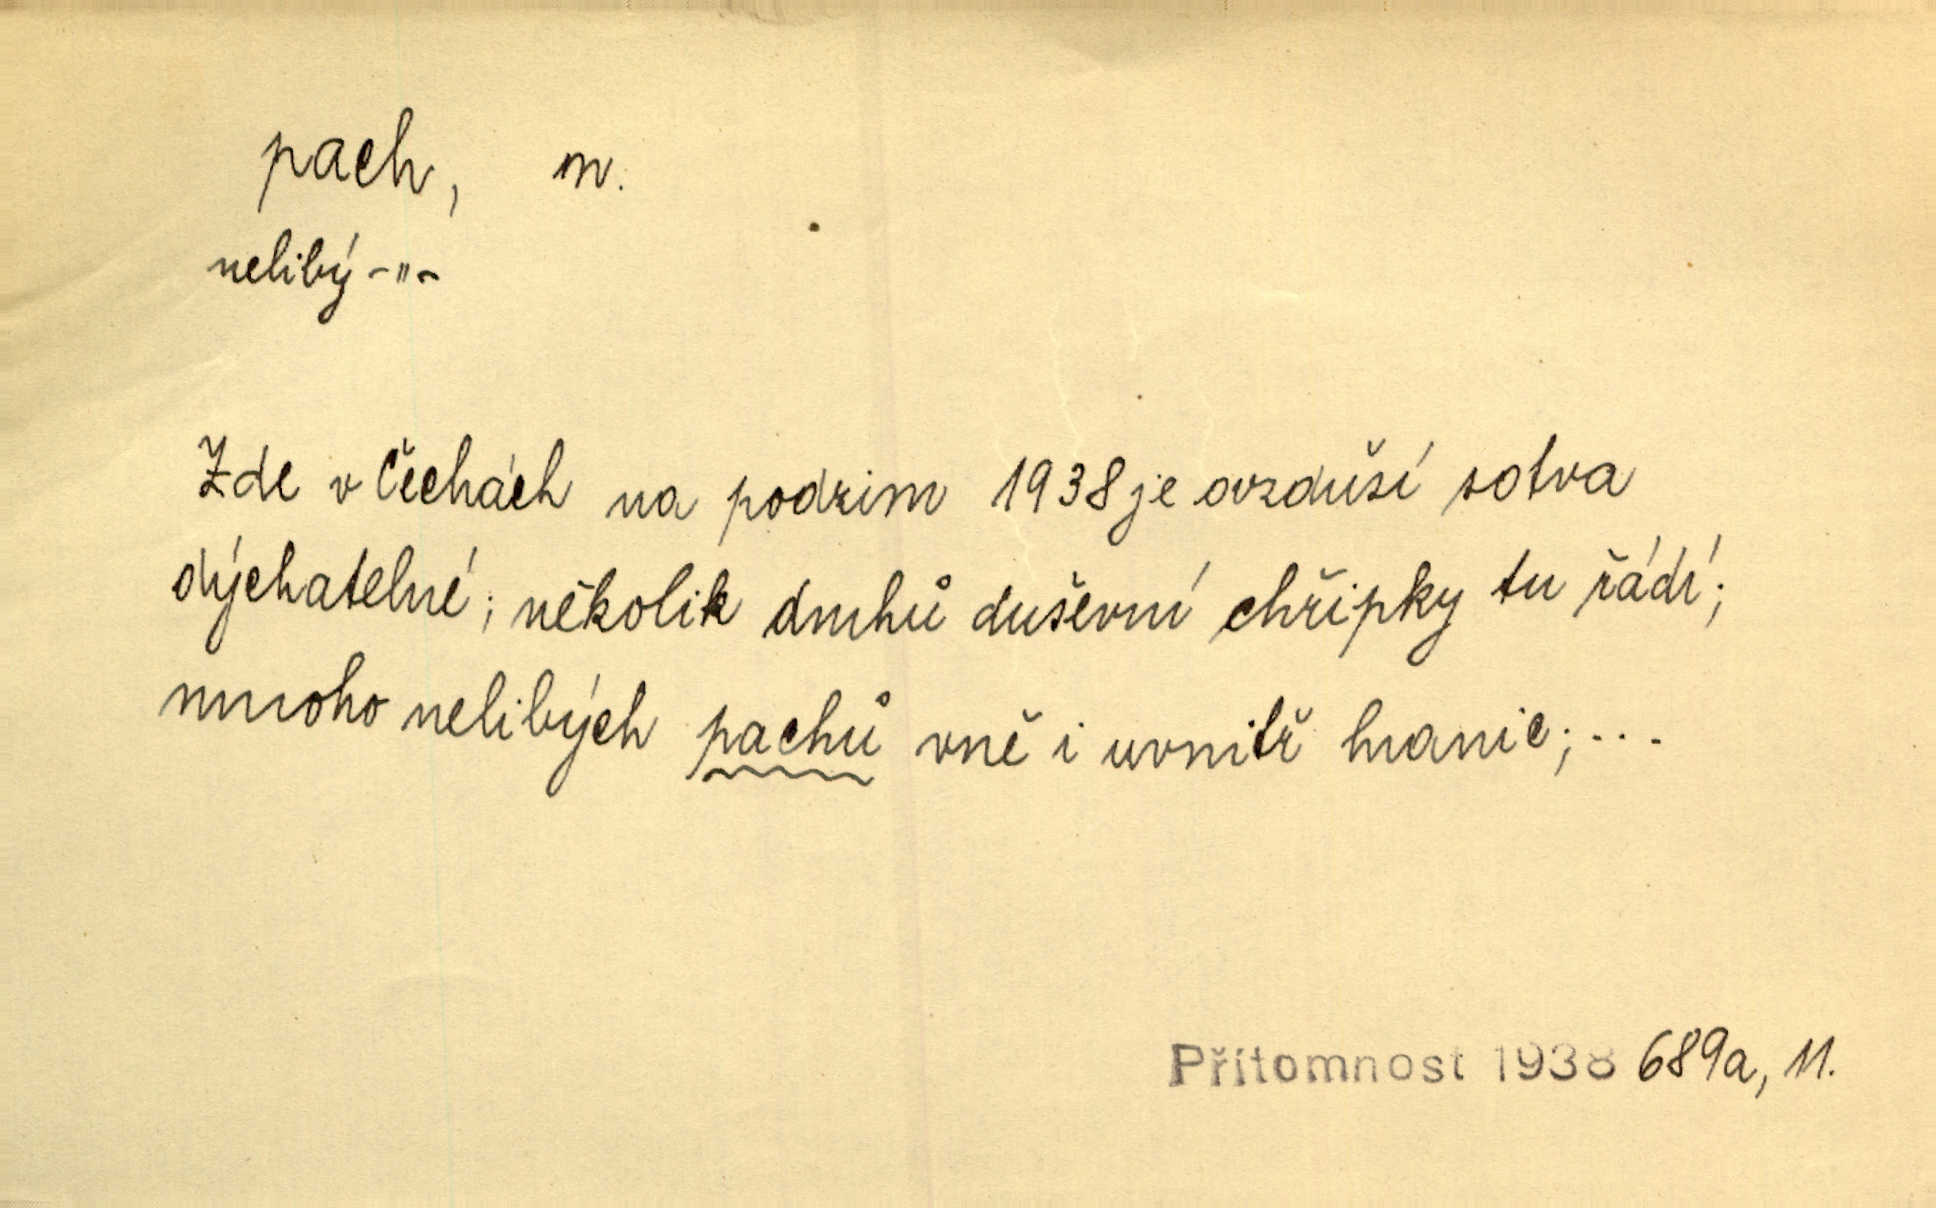 pach, m.
nelibý -"-
Zde v Čechách na podzim 1938 je ovzduší sotva
dýchatelné; několik druhů duševní chřipky tu řádí;
mnoho nelibých pachů vně i uvnitř hranic; ...
Přítomnost 1938 689a, 11.